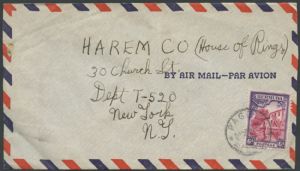 HAREM CO (House of Rings)
30 Church St.
BY AIR MAIL—PAR AVION
Dept T-520
New York
N.Y.